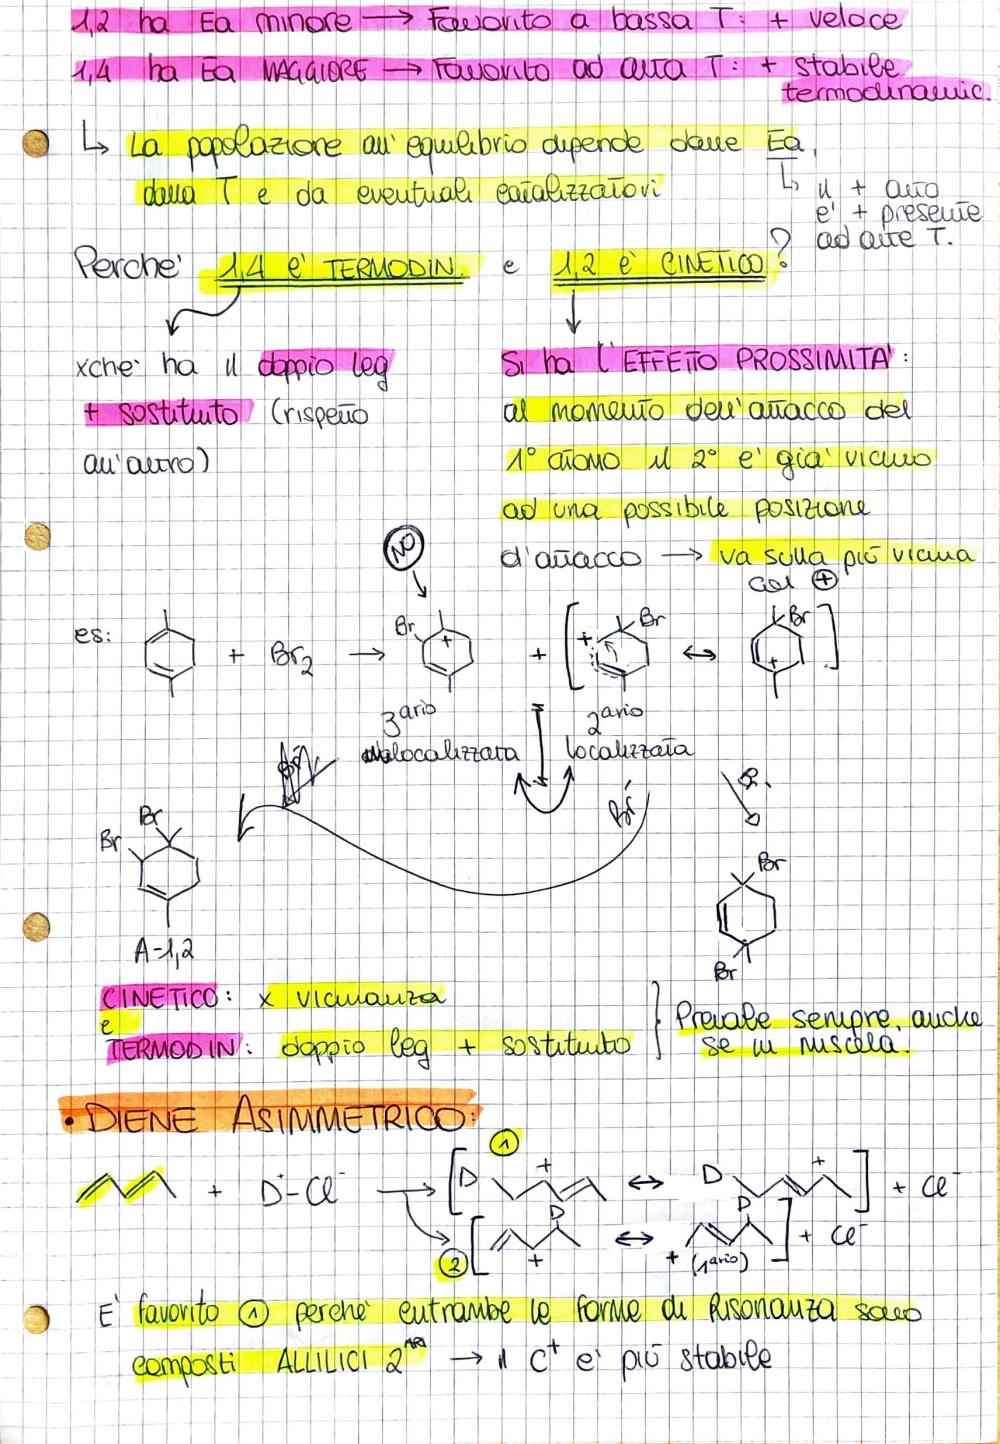 1,2 ha Ea minore → Favorito a bassa T: + veloce
1,4 ha Ea MAGGIORE → Favorito ad alta T: + stabile
termodinamic.
↳ La popolazione all'equilibrio dipende dalle Ea,
dalla T e da eventuali catalizzatori
↳ il + alto
è + presente
ad alte T.
Perche' 1,4 e' TERMODIN. e 1,2 è CINETICO?
xche' ha il doppio leg
+ sostituito (rispetto
all'altro)
Si ha l'EFFETTO PROSSIMITA':
al momento dell'attacco del
1° atomo il 2° e' gia' vicino
ad una possibile posizione
d'attacco → va sulla più vicina
al ⊕
NO
es: + Br2 → Br + + [ + Br ↔ Br + ]
3ario
delocalizzata
2ario
localizzata
Br-
Br
Br
A-1,2
Br
Br
CINETICO: x vicinanza
e
TERMODIN: doppio leg + sostituito
} Prevale sempre, anche
se in miscela.
• DIENE ASIMMETRICO:
1
+ D+-Cl- → [ D + ↔ D + ] + Cl-
2 [ D + ↔ D + (1ario) ] + Cl-
E' favorito 1 perche' entrambe le forme di Risonanza sono
composti ALLILICI 2ARI → il C+ e' più stabile